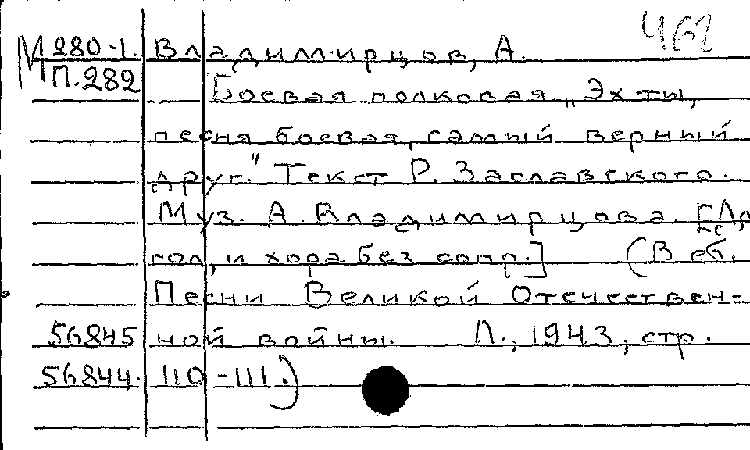 462
М 280-1. Владимирцов, А.
П.282 Боевая полковая „Эх ты,
песня боевая, самый верный
друг." Текст Р. Заславского.
Муз. А. Владимирцова. [Дл,
гол, и хора без сопр.] (В сб.
Песни Великой Отечествен-
56845 ной войны. Л., 1943, стр.
56844. 110-111.)